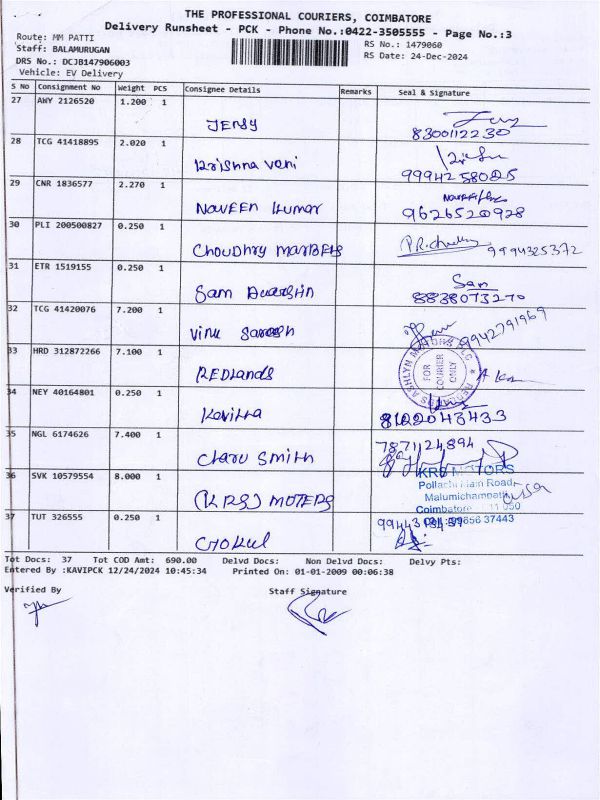 THE PROFESSIONAL COURIERS, COIMBATORE
Delivery Runsheet - PCK - Phone No.:0422-3505555 - Page No.:3
Route: MM PATTI
RS No.: 1479060
Staff: BALAMURUGAN
RS Date: 24-Dec-2024
DRS No.: DCJB147906003
Vehicle: EV Delivery
S No Consignment No Weight PCS Consignee Details Remarks Seal & Signature
27 AWY 2126520 1.200 1
JENSY
8300112230
28 TCG 41418895 2.020 1
Krishna veni
9994258085
29 CNR 1836577 2.270 1
NAVEEN KUMAR
9626520928
30 PLI 200500827 0.250 1
CHOUDHRY MARBELS
P.R. 9994325372
31 ETR 1519155 0.250 1
Sam
Sam
8838073270
32 TCG 41420076 7.200 1
Vinu
9942791969
33 HRD 312872266 7.100 1
REDLANDS
FOR COURIER ONLY
34 NEY 40164801 0.250 1
Kavitha
8122043433
35 NGL 6174626 7.400 1
Charu Smith
7871124894
36 SVK 10579554 8.000 1
(KRS) MOTERS
KRS MOTORS
Pollachi Main Road,
Malumichampatti,
Coimbatore
37443
37 TUT 326555 0.250 1
GOKUL
Tot Docs: 37 Tot COD Amt: 690.00 Delvd Docs: Non Delvd Docs: Delvy Pts:
Entered By :KAVIPCK 12/24/2024 10:45:34 Printed On: 01-01-2009 00:06:38
Verified By
Staff Signature